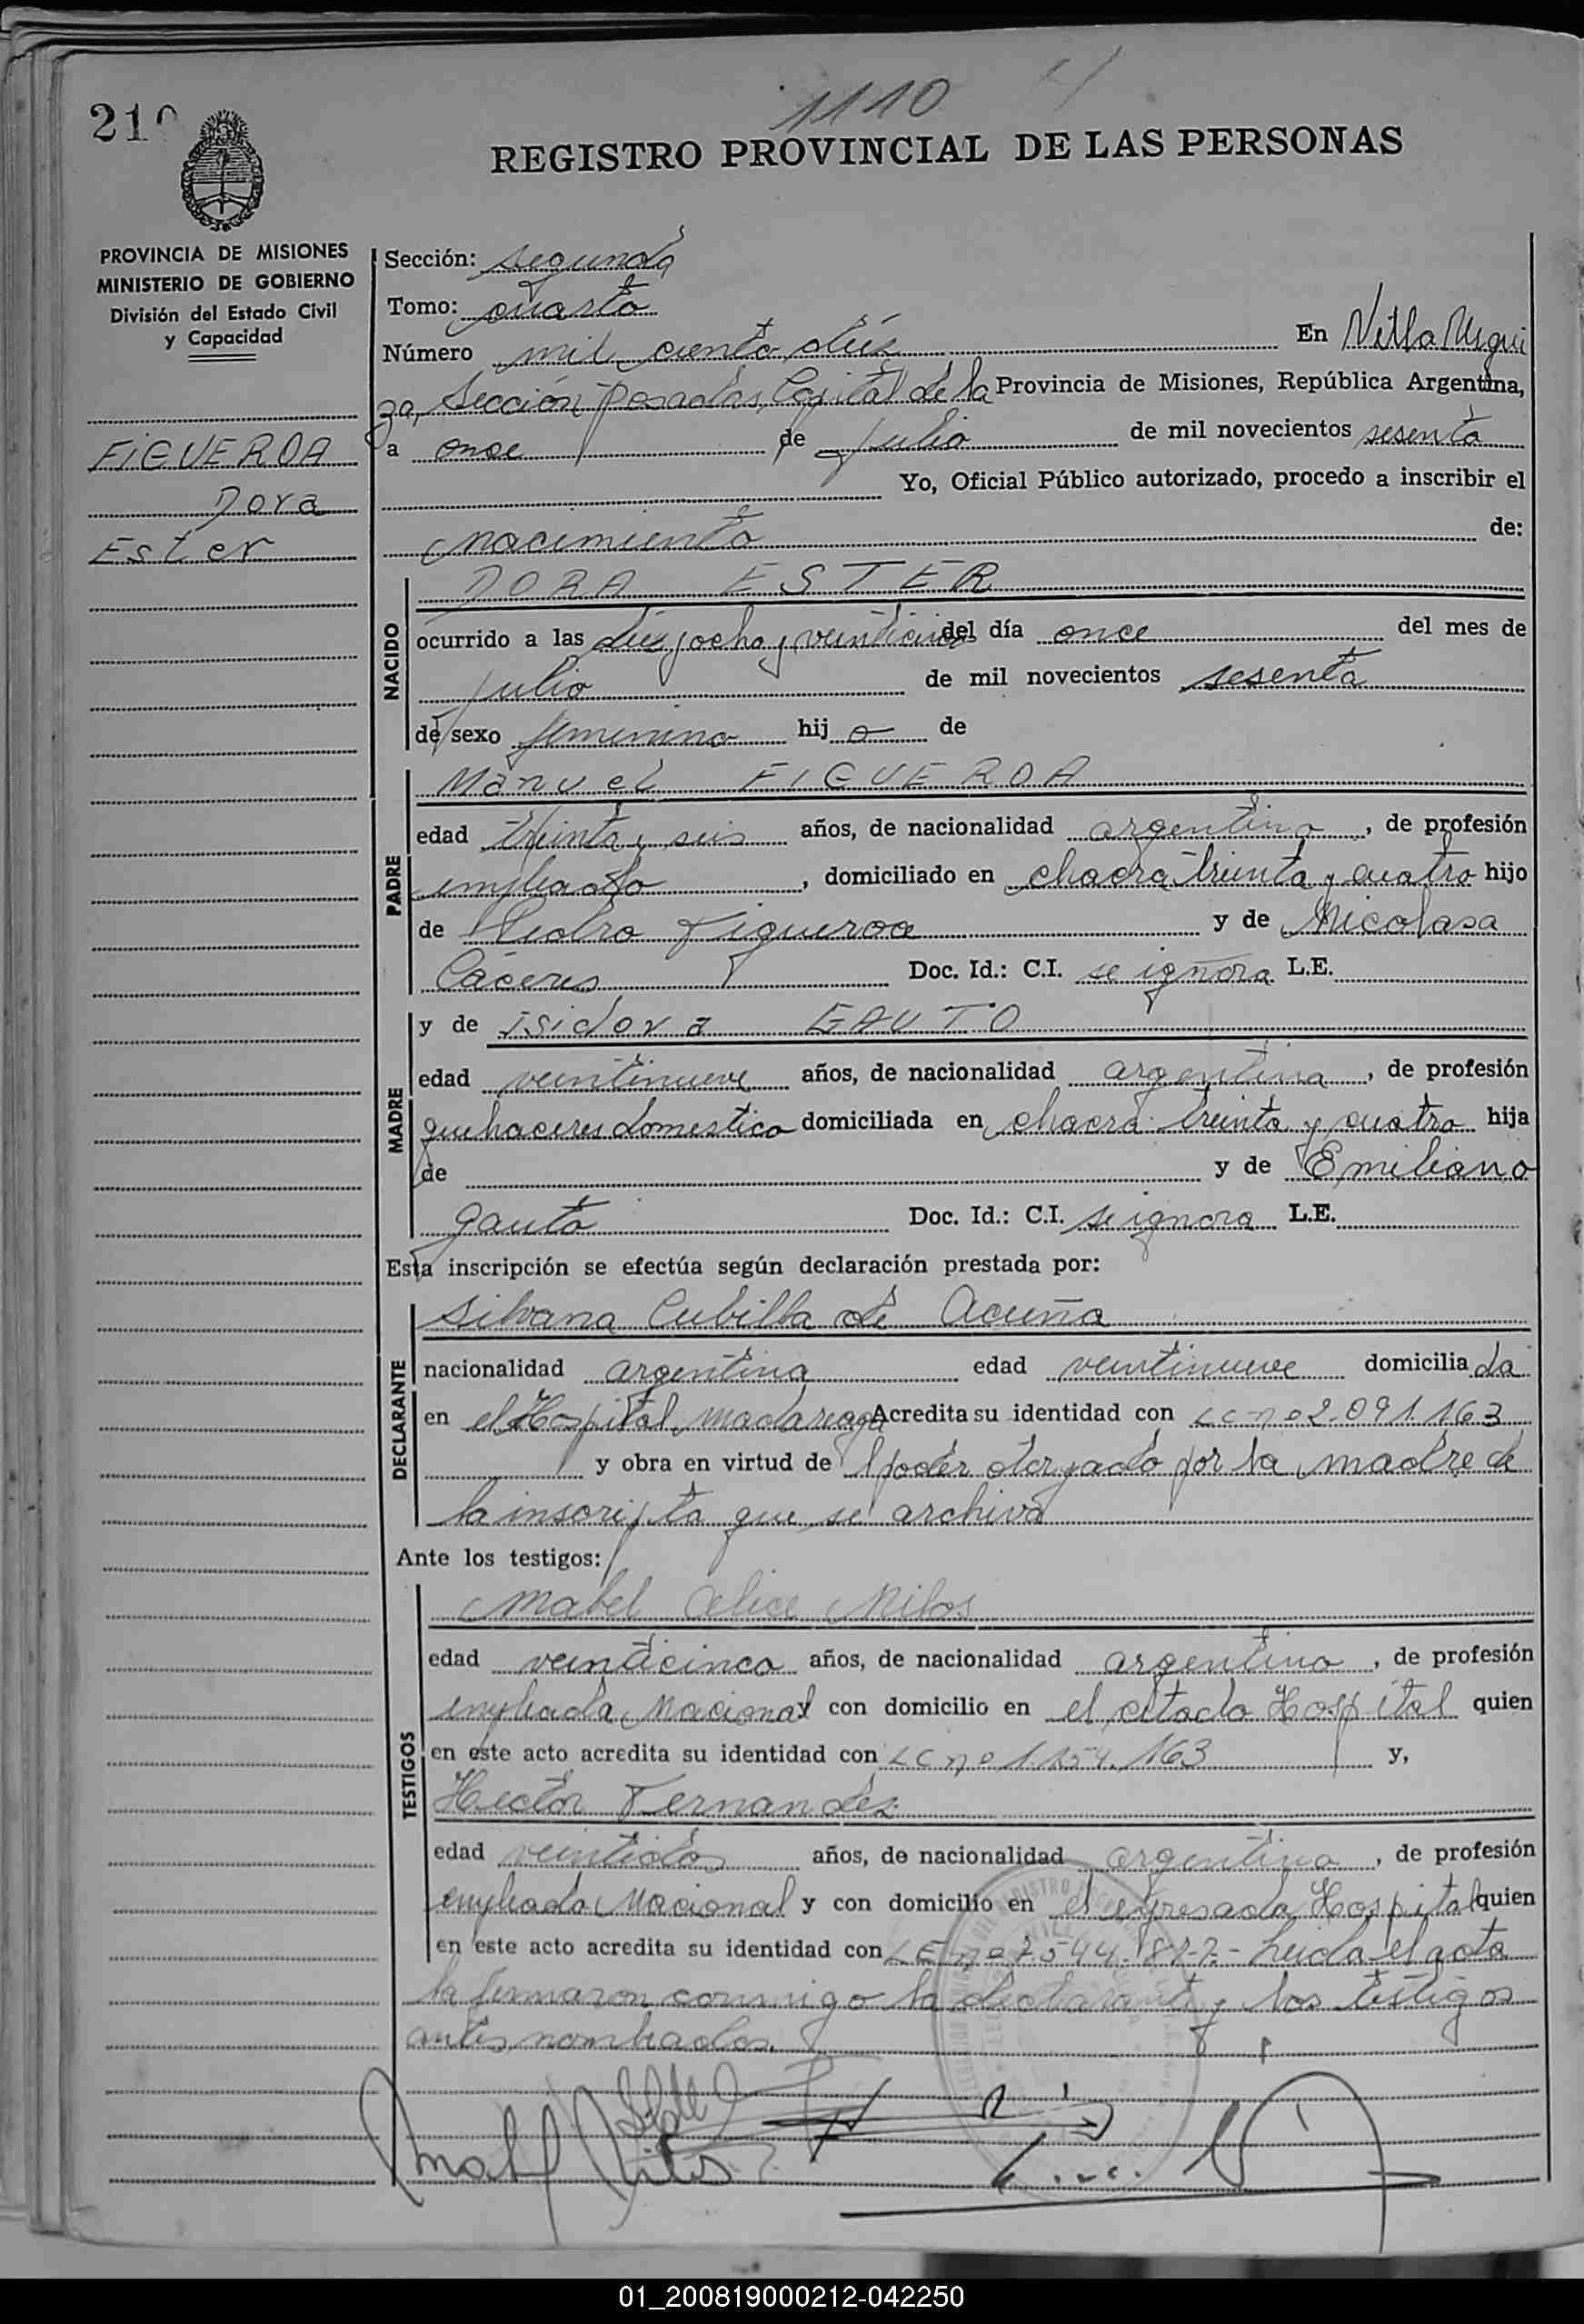 1110
REGISTRO PROVINCIAL DE LAS PERSONAS
PROVINCIA DE MISIONES
MINISTERIO DE GOBIERNO
División del Estado Civil
y Capacidad
FIGUEROA
Dora
Ester
Sección: segunda
Tomo: cuarto
Número mil ciento diéz En Villa Urqui
za, Sección Posadas, Capital de la Provincia de Misiones, República Argentina,
a once de julio de mil novecientos sesenta
Yo, Oficial Público autorizado, procedo a inscribir el
nacimiento de:
NACIDO
DORA ESTER
ocurrido a las diez y ocho y veinticinco del día once del mes de
julio de mil novecientos sesenta
de sexo femenino hij a de
PADRE
Manuel FIGUEROA
edad treinta y seis años, de nacionalidad argentino, de profesión
empleado, domiciliado en chacra treinta y cuatro hijo
de Pedro Figueroa y de Nicolasa
Cáceres Doc. Id.: C.I. se ignora L.E.
MADRE
y de Isidora GAUTO
edad veintinueve años, de nacionalidad argentina, de profesión
quehaceres domestico domiciliada en chacra treinta y cuatro hija
de y de Emiliana
Gauto Doc. Id.: C.I. se ignora L.E.
Esta inscripción se efectúa según declaración prestada por:
DECLARANTE
Silvana Cubilla de Acuña
nacionalidad argentina edad veintinueve domicilia da
en el Hospital Madariaga Acredita su identidad con LC nº 2.091.163
y obra en virtud de l poder otorgado por la madre de
la inscripta que se archiva
Ante los testigos:
TESTIGOS
Mabel Alice Milos
edad veinticinco años, de nacionalidad argentina, de profesión
empleada Nacional con domicilio en el citado Hospital quien
en este acto acredita su identidad con LC nº 1.154.163 y,
Hector Fernandez
edad veintidos años, de nacionalidad argentino, de profesión
empleado Nacional y con domicilio en el expresado Hospital quien
en este acto acredita su identidad con LE nº 7.544.877.- Leida el acta
la firmaron conmigo la declarante y los testigos
antes nombrados.
01_200819000212-042250